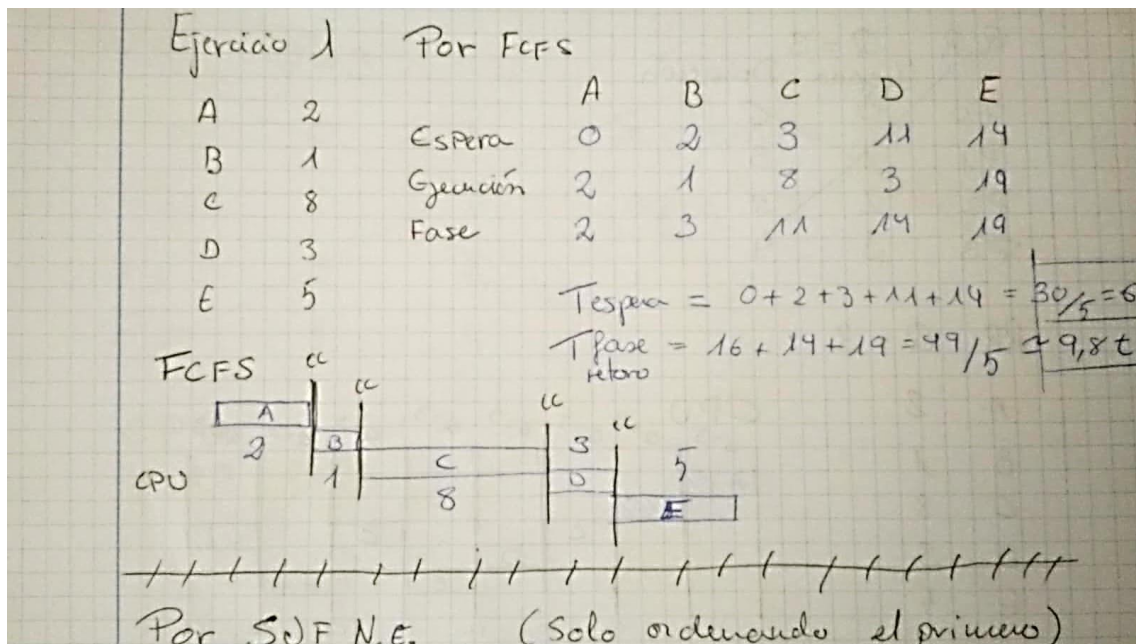 Ejercicio 1 Por FCFS
A B C D E
A 2
Espera 0 2 3 11 14
B 1
Ejecución 2 1 8 3 19
C 8
Fase 2 3 11 14 19
D 3
E 5
Tespera = 0+2+3+11+14 = 30/5 = 6
Tfase = 16+14+19 = 49/5 = 9,8 t
retoro
FCFS
CC CC CC CC
A
2
B
1
C
8
3
D
5
E
CPU
Por SJF N.E. (Solo ordenando el primero)